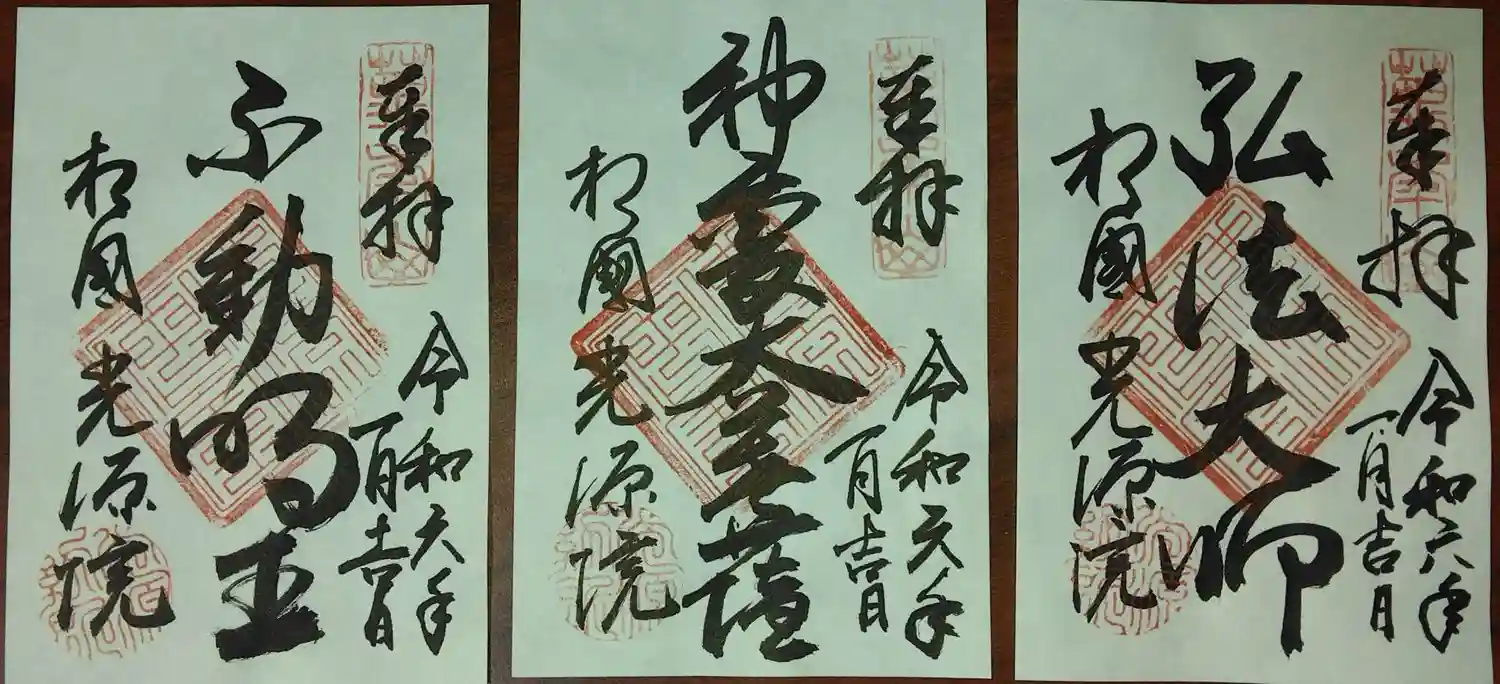 奉拝
令和六年
一月吉日
不動明王
相國光源院
奉拝
令和六年
一月吉日
神變大菩薩
相國光源院
奉拝
令和六年
一月吉日
弘法大師
相國光源院